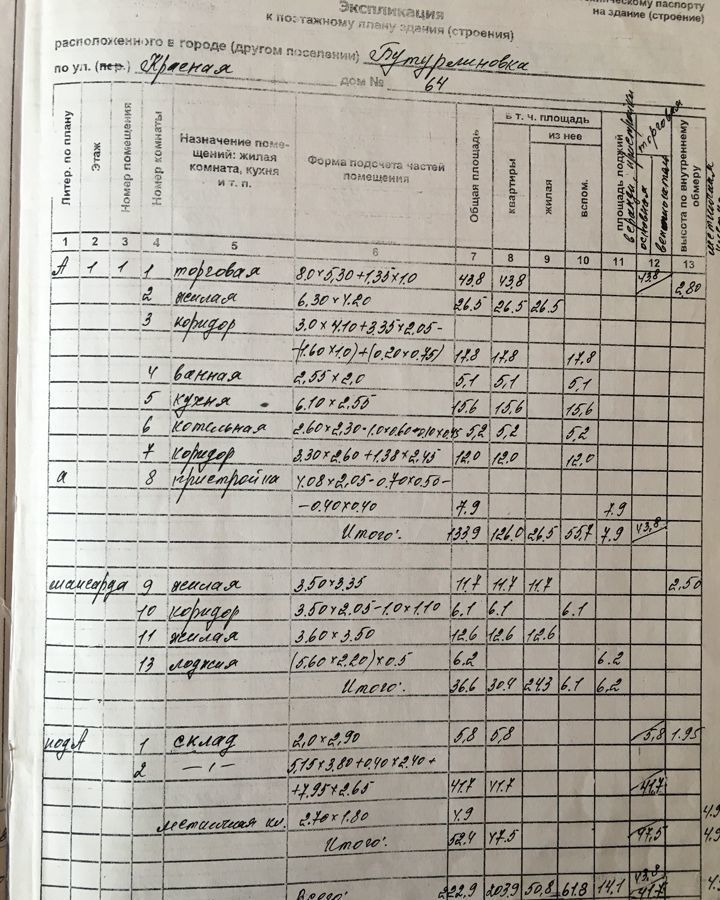 Экспликация
к поэтажному плану здания (строения)
паспорту
на здание (строение)
расположенного в городе (другом поселении) Бутурлиновка
по ул. (пер.) Красная дом № 64
Литер. по плану
Этаж
Номер помещения
Номер комнаты
Назначение поме-
щений: жилая
комната, кухня
и т. п.
Форма подсчета частей
помещения
Общая площадь
в т. ч. площадь
квартиры
из нее
жилая
вспом.
площадь лоджий
основная
торговая
высота по внутреннему
обмеру
1 2 3 4 5 6 7 8 9 10 11 12 13
А 1 1 1 торговая 8.0×5,30+1,35×1.0 43,8 43,8 43,8 2,80
2 жилая 6,30×4.20 26.5 26.5 26.5
3 коридор 3.0×4.10+3.35×2.05-
-(1.60×1.0)+(0.20×0.75) 17.8 17,8 17,8
4 ванная 2,55×2,0 5,1 5,1 5,1
5 кухня 6.10×2.55 15.6 15,6 15,6
6 котельная 2.60×2,30-1.0×0,60-0,10×0,45 5,2 5,2 5,2
7 коридор 3.30×2,60+1,38×2,45 12.0 12,0 12,0
а 8 пристройка 4.08×2,05-0.70×0.50-
-0.40×0.40 7.9 7.9
Итого: 133.9 126.0 26.5 55.7 7.9 43,8
мансарда 9 жилая 3.50×3.35 11.7 11.7 11.7 2,50
10 коридор 3.50×2.05-1.0×1.10 6.1 6.1 6.1
11 жилая 3.60×3.50 12.6 12.6 12.6
13 лоджия (5.60×2.20)×0.5 6.2 6.2
Итого: 36.6 30.4 24.3 6.1 6,2
подА 1 склад 2,0×2,90 5,8 5,8 5,8 1.95
2 —"— 5,15×3.80+0,40×2.40+
+7,95×2.65 41.7 41.7 41,7
лестничная кл. 2.70×1.80 4.9
Итого: 52.4 47.5 47,5
Всего: 222,9 203.9 50,8 61.8 14.1 43.8
41.7